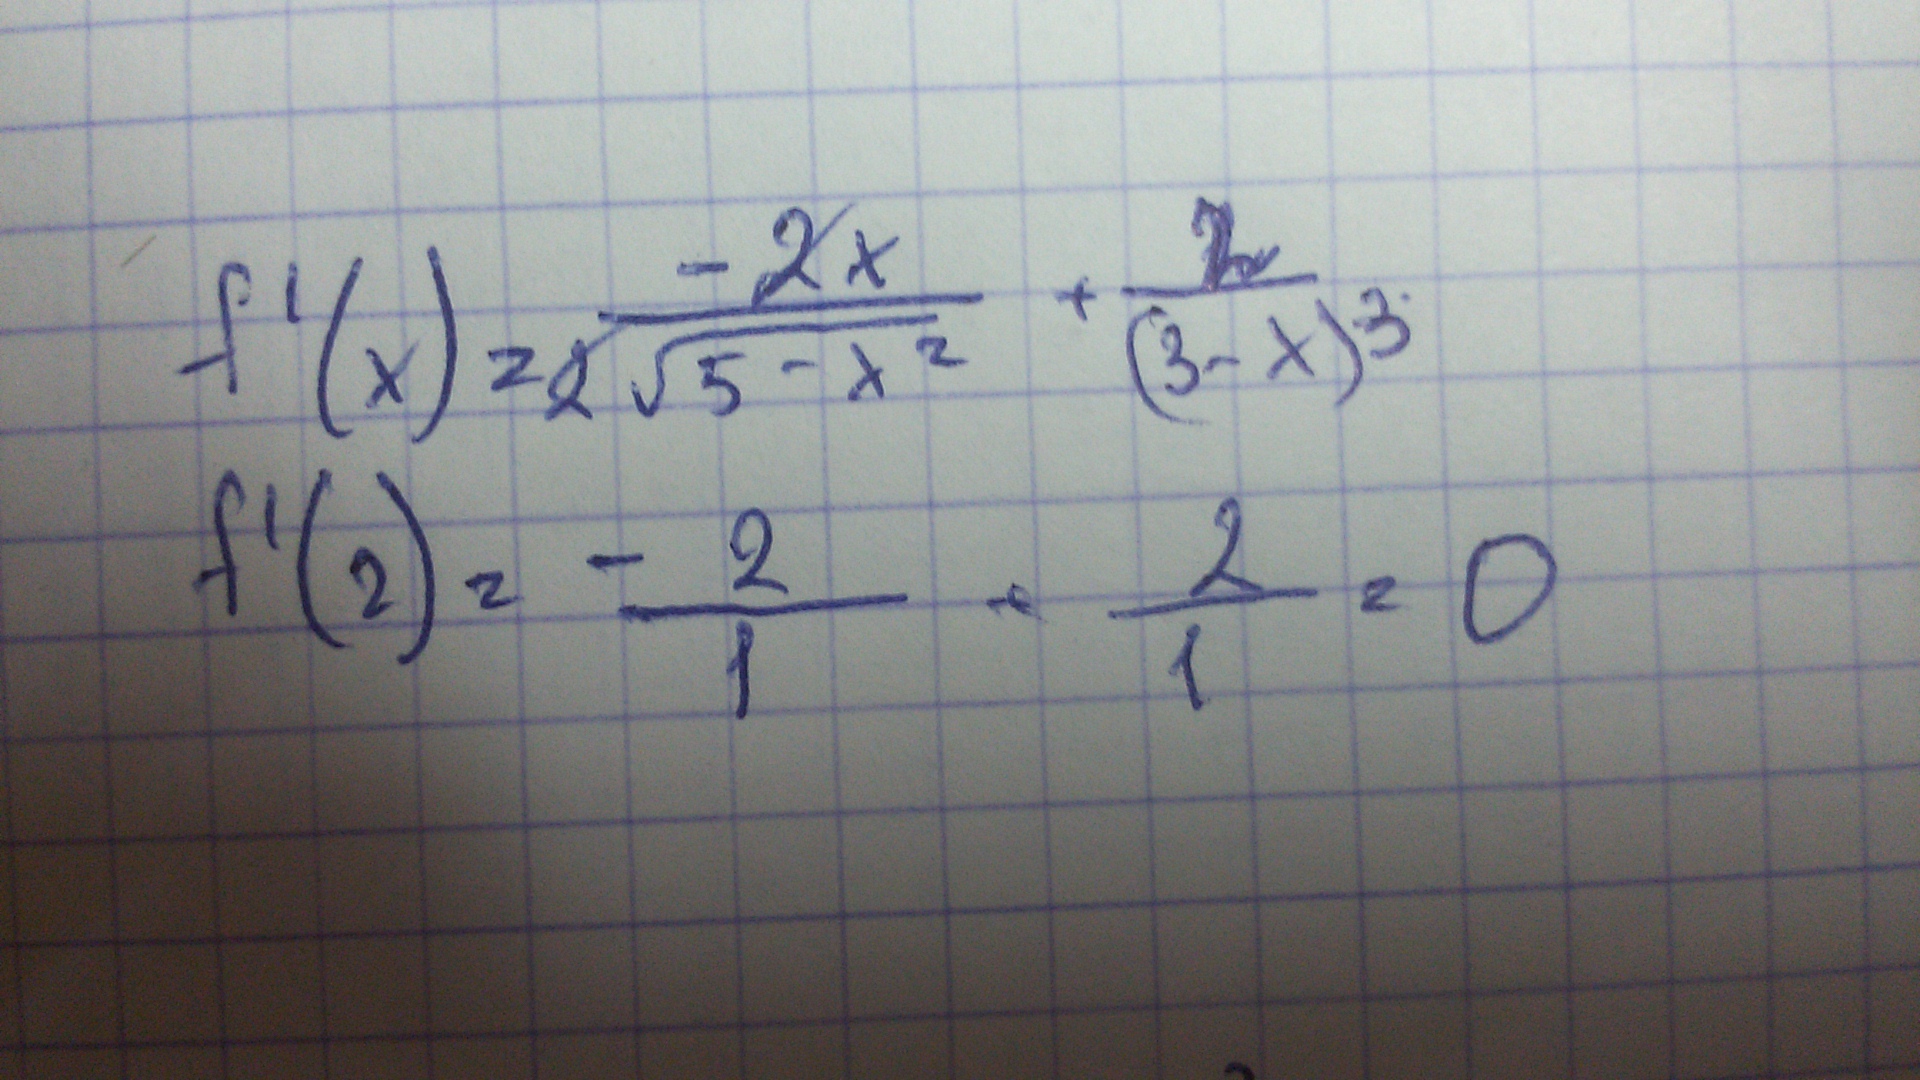 f'(x) = -2x / 2√5-x² + 2 / (3-x)³
f'(2) = - 2/1 + 2/1 = 0